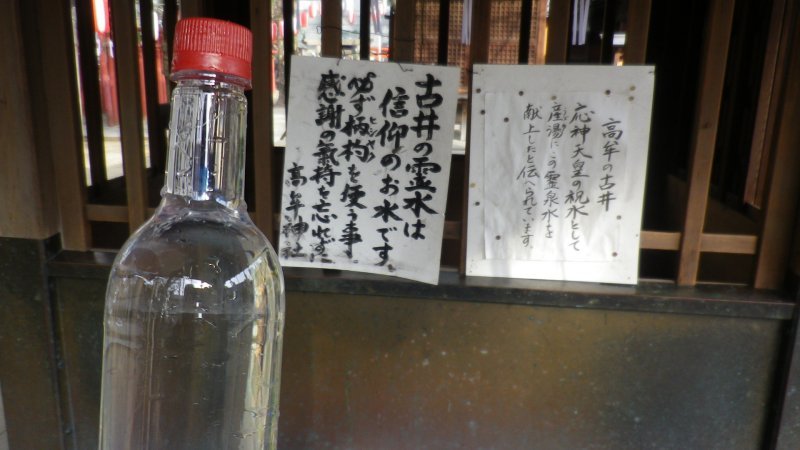 古井の霊水は
信仰のお水です。
必ず柄杓を使う事
ヒシャク
感謝の氣持を忘れずに
高牟神社
高牟の古井
応神天皇の祝水として
産湯にこの霊泉水を
献上したと伝へられています。